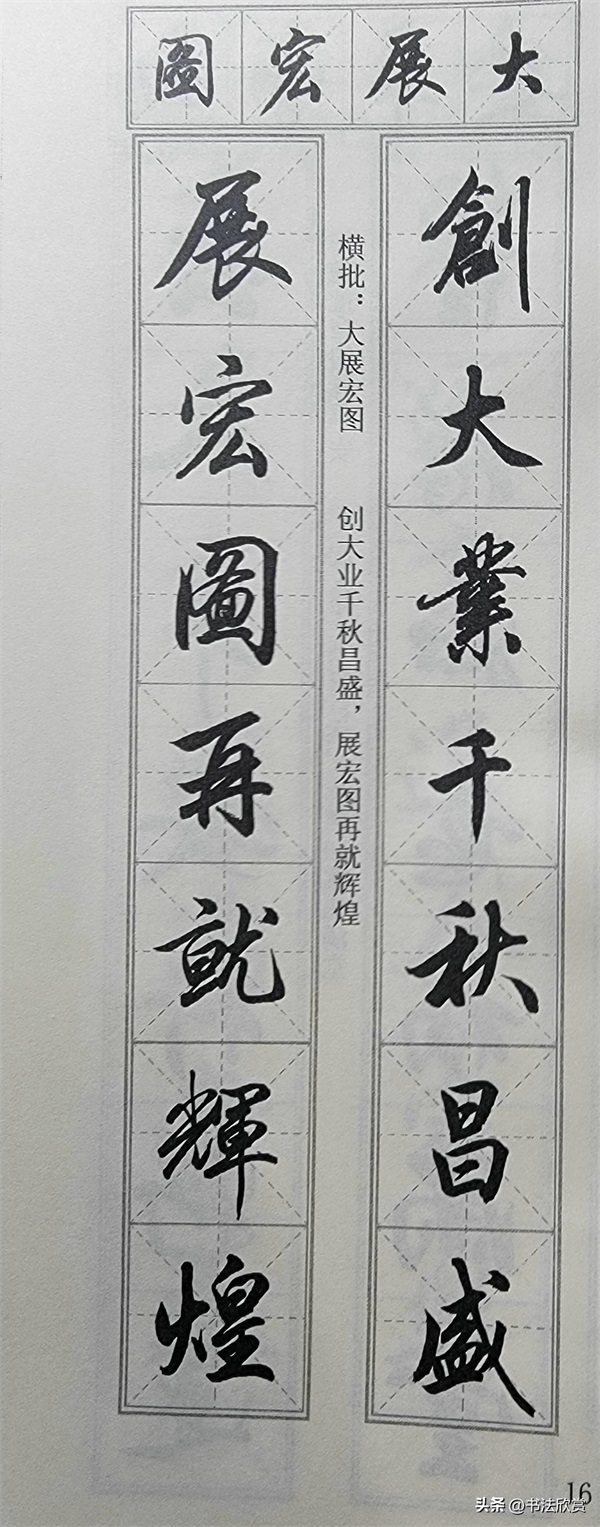 大展宏圖
創大業千秋昌盛
横批：大展宏图
创大业千秋昌盛，展宏图再就辉煌
展宏圖再就輝煌
16
头条 @书法欣赏